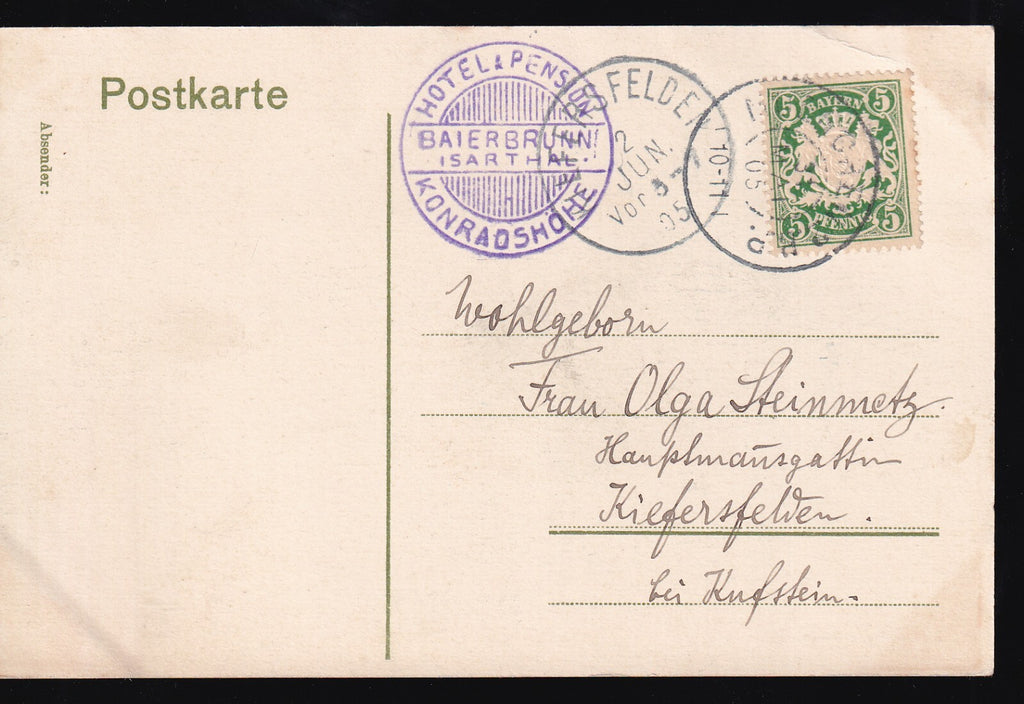 Postkarte
Absender:
HOTEL & PENSION
BAIERBRUNN
ISARTHAL.
KONRADSHÖHE
KIEFERSFELDEN
2
JUN.
Vor
05
10-11
5 BAYERN 5
5 PFENNIG 5
Wohlgeborn
Frau Olga Steinmetz.
Hauptmannsgattin
Kiefersfelden.
bei Kufstein.